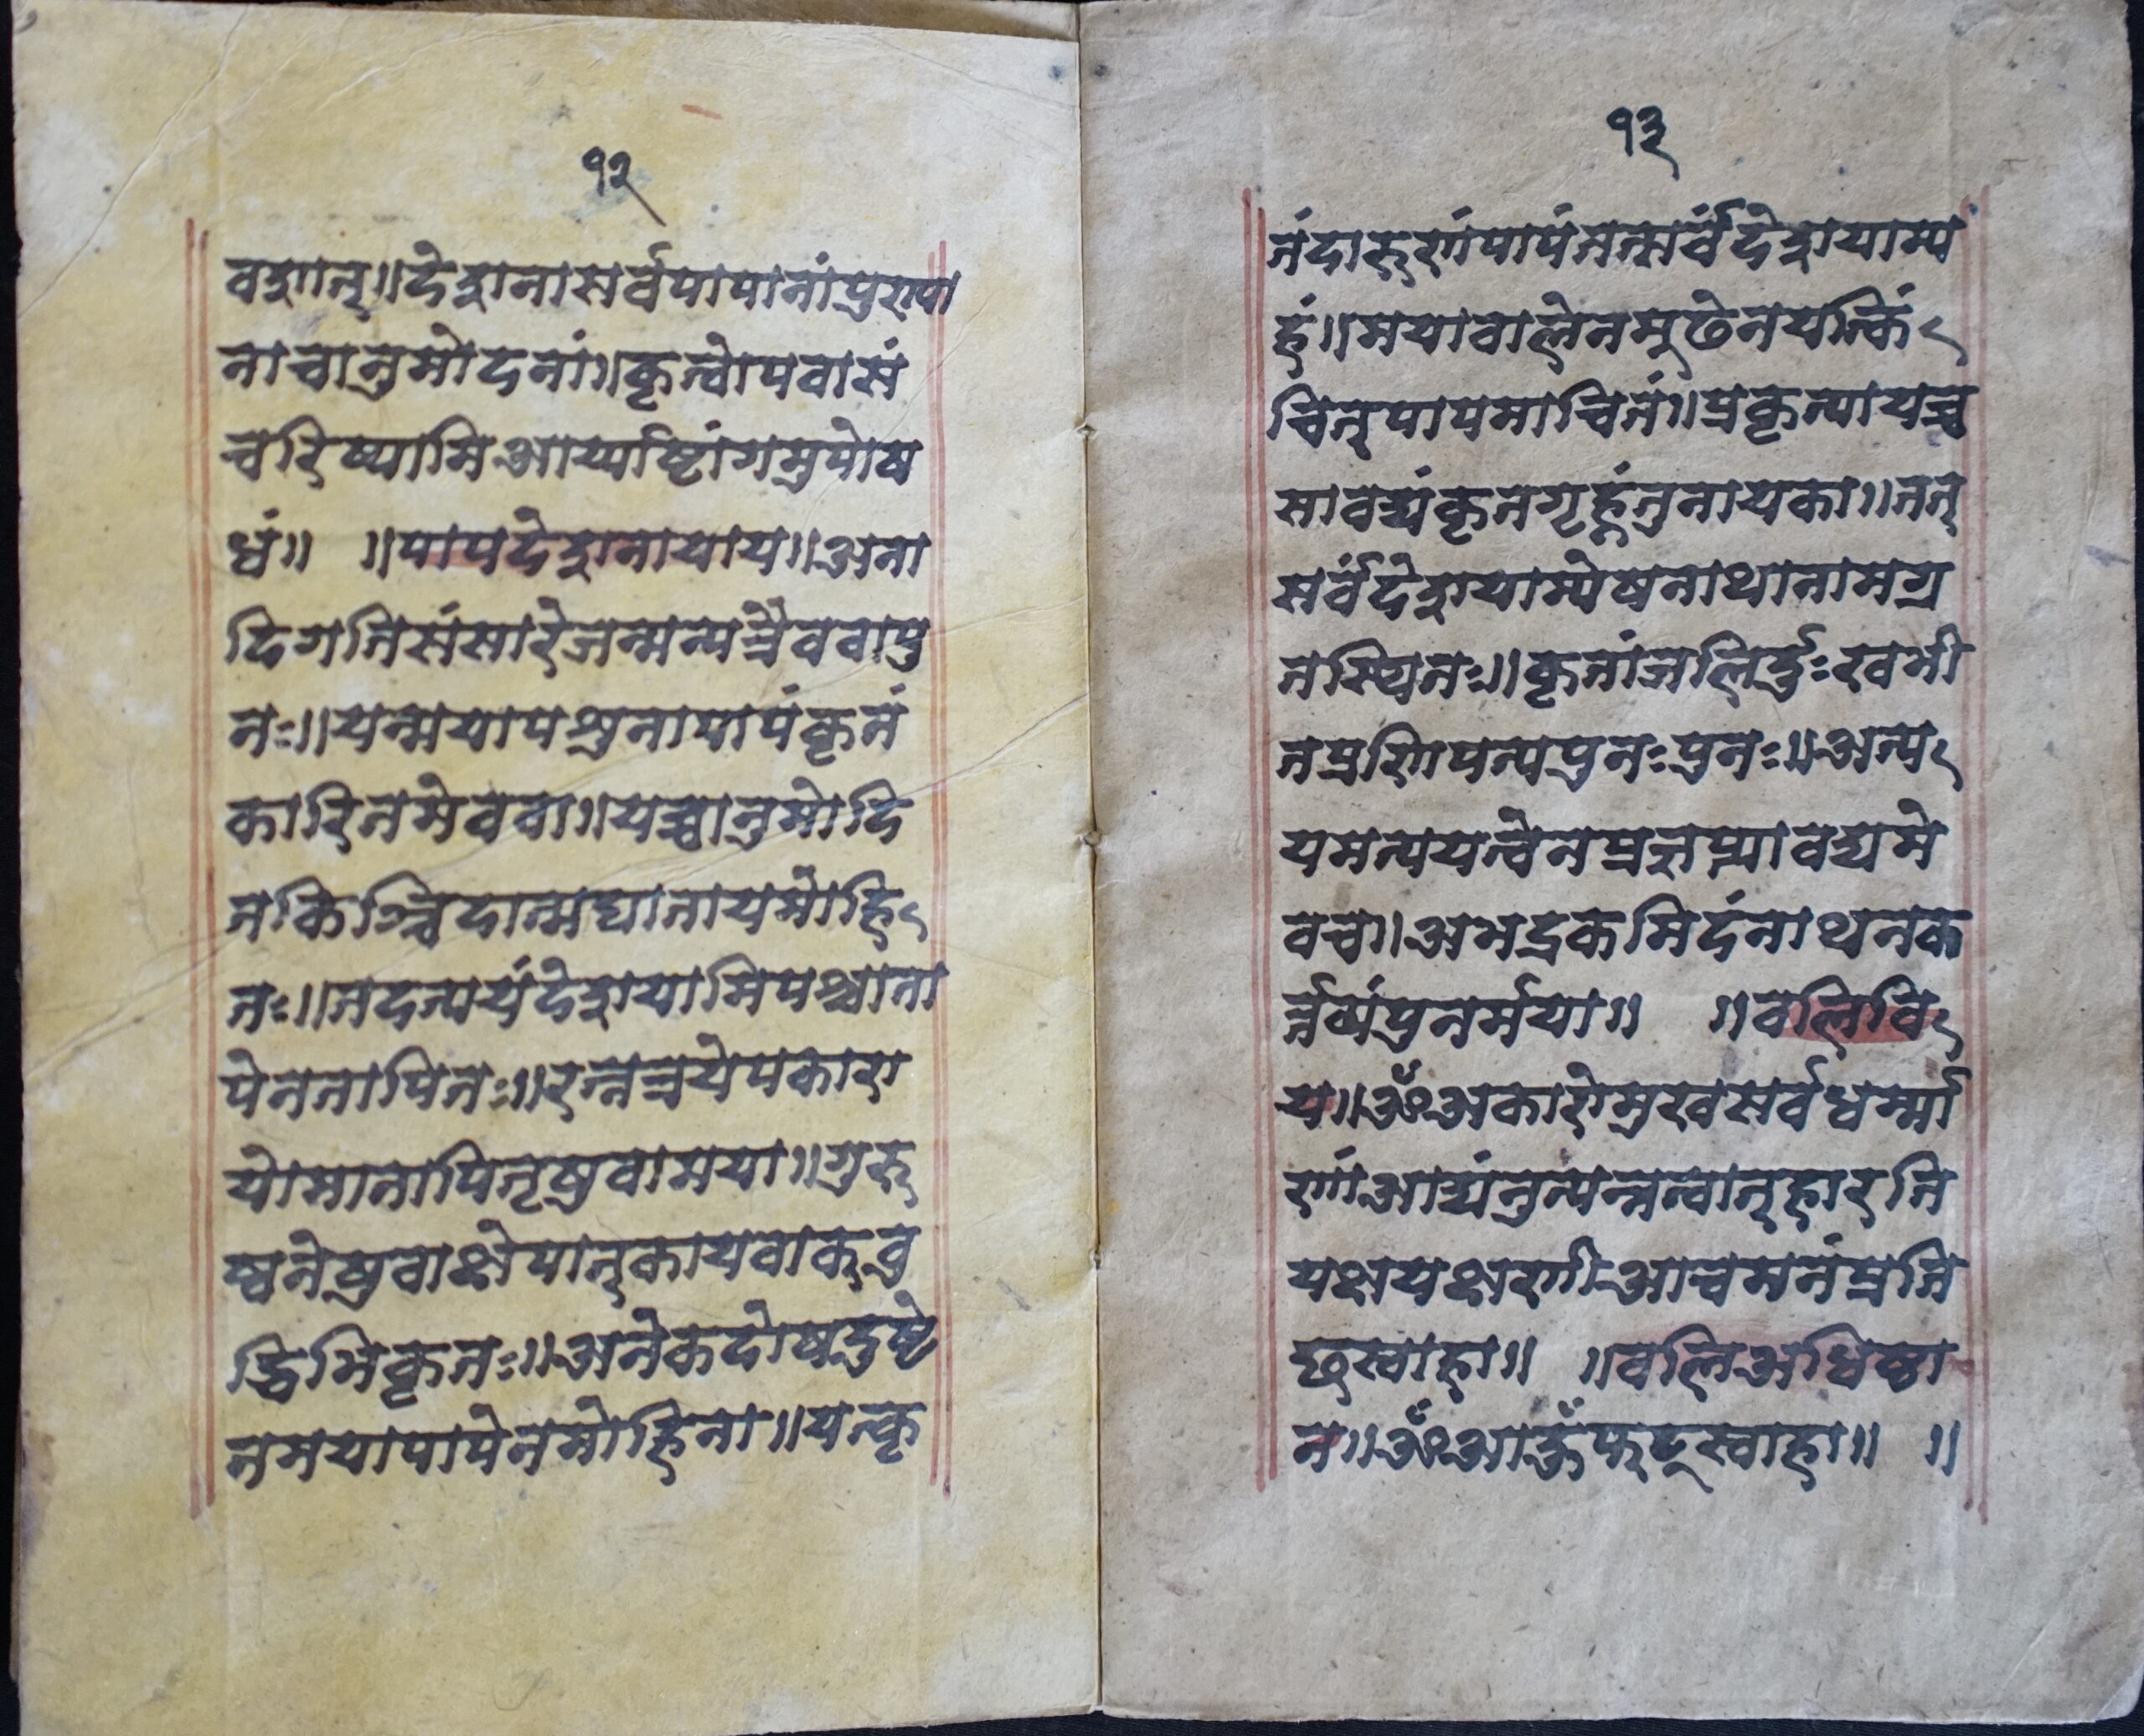 १२
वङ्गान्॥देशनासर्वपापानांपुण्या
नाचानुमोदनां॥कृत्वोपवासं
चरिष्यामिआर्य्याष्टांगमुपोष
धं॥ ॥पापदेशनायाय॥अना
दिगतिसंसारेजन्मन्यत्रैववापु
नः॥यन्मयापशुनापापंकृतं
कारितमेववा॥यच्चानुमोदि
तकिञ्चिदात्मघातायमोहि
तः॥तदत्ययंदेशयामिपश्चाता
पेनतापितः॥रत्नत्रयेपकारा
योमातापितृषुवामया॥गुरु
ष्वनेषुवाक्षेपात्कायवाक्बु
द्धिभिकृतः॥अनेकदोषदुष्टे
नमयापापेनमोहिना॥यत्कृ
१३
तंदारुणंपापंतत्सर्वंदेशयाम्य
हं॥मयावालेनमुढेनयत्किं
चित्पापमाचितं॥प्रकृत्यायच्च
सावद्यंकृतगृह्णंतुनायका॥तत्
सर्वंदेशयाम्येषनाथानामग्र
तस्थितः॥कृतांजलिर्दुःखभी
तप्रणिपत्यपुनःपुनः॥अत्य
यमत्ययत्वेनप्रज्ञप्त्यावद्यमे
वच॥अभद्रकमिदंनाथनक
र्त्तव्यंपुनर्मया॥ ॥वलिवि
य॥ॐअकारोमुखसर्वधर्म्मा
णांआद्यंनुत्पन्नत्वात्हारति
यक्षयक्षणीआचमनंप्रति
छस्वाहा॥ ॥वलिअधिष्ठा
न॥ॐआहूँफट्स्वाहा॥ ॥